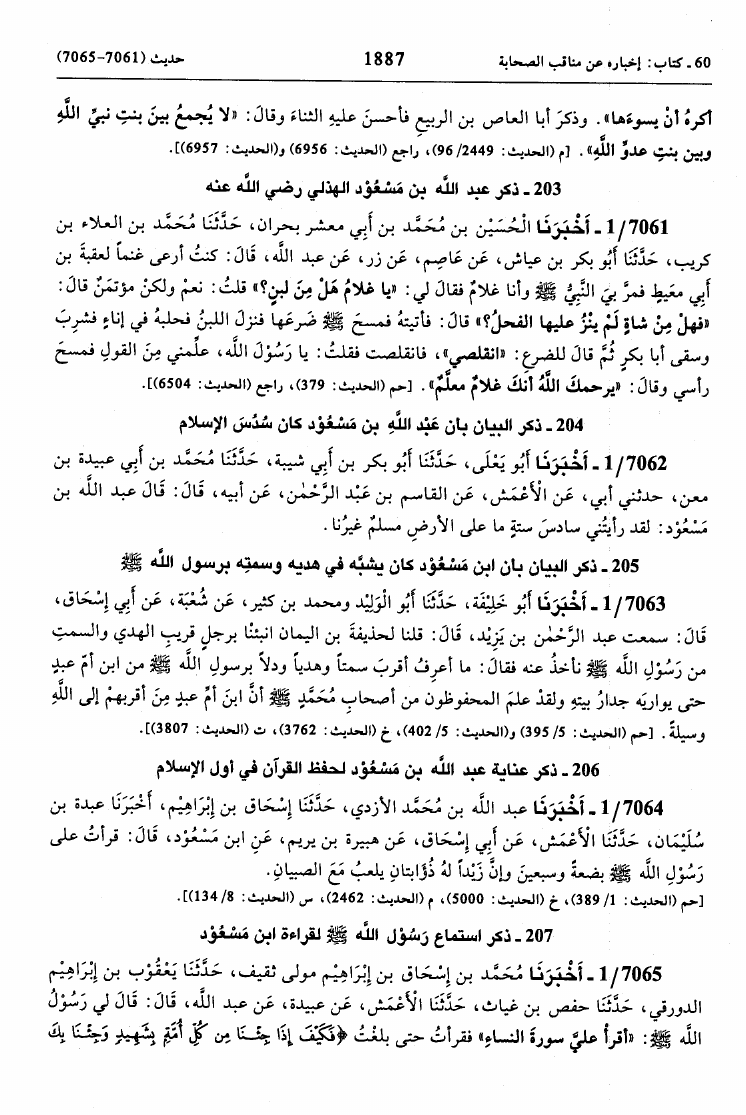 60 ـ كتاب: إخباره عن مناقب الصحابة 1887 حديث (7061-7065)
أكرهُ أنْ يسوءَها». وذكرَ أبا العاص بن الربيع فأحسنَ عليهِ الثناءَ وقالَ: «لا يُجمعُ بينَ بنتِ نبيِّ اللَّهِ
وبين بنتِ عدوِّ اللَّهِ». [م (الحديث: 2449/ 96)، راجع (الحديث: 6956) و(الحديث: 6957)].
203 ـ ذكر عبد اللَّه بن مَسْعُوْد الهذلي رضي اللَّه عنه
1/7061 ـ أَخْبَرَنَا الْحُسَيْن بن مُحَمَّد بن أَبي معشر بحران، حَدَّثَنَا مُحَمَّد بن العلاء بن
كريب، حَدَّثَنَا أَبُو بكر بن عياش، عَن عَاصِم، عَن زر، عَن عبد اللَّه، قَالَ: كنتُ أرعى غنماً لعقبةَ بن
أَبي معَيط فمرَّ بيَ النَّبِيُّ ﷺ وأنا غلامٌ فقالَ لي: «يا غلامُ هَلْ مِنَ لبنٍ؟» قلتُ: نعمْ ولكنْ مؤتمَنٌ قالَ:
«فهلْ مِنْ شاةٍ لَمْ ينْزُ عليها الفحلُ؟» قالَ: فأتيتهُ فمسحَ ﷺ ضَرعَها فنزلَ اللبنُ فحلبهُ في إناءٍ فشربَ
وسقى أبا بكرٍ ثُمَّ قالَ للضرعِ: «انقلصي»، فانقلصت فقلتُ: يا رَسُوْلَ اللَّه، علِّمني مِنَ القولِ فمسحَ
رأسي وقالَ: «يرحمكَ اللَّهُ أنكَ غلامٌ معلَّمٌ». [حم (الحديث: 379)، راجع (الحديث: 6504)].
204 ـ ذكر البيان بان عَبْد اللَّهِ بن مَسْعُوْد كان سُدُسَ الإسلام
1/7062 ـ أَخْبَرَنَا أَبُو يَعْلَى، حَدَّثَنَا أَبُو بكر بن أَبي شيبة، حَدَّثَنَا مُحَمَّد بن أَبي عبيدة بن
معن، حدثني أبي، عَن الْأَعْمَش، عَن القاسم بن عَبْد الرَّحْمٰن، عَن أبيه، قَالَ: قَالَ عبد اللَّه بن
مَسْعُوْد: لقد رأيتُني سادسَ ستةٍ ما على الأرضِ مسلمٌ غيرُنا.
205 ـ ذكر البيان بان ابن مَسْعُوْد كان يشبَّه في هديه وسمتِه برسول اللَّه ﷺ
1/7063 ـ أَخْبَرَنَا أَبُو خَلِيْفَة، حَدَّثَنَا أَبُو الْوَلِيْد ومحمد بن كثير، عَن شُعْبَة، عَن أَبي إِسْحَاق،
قَالَ: سمعت عبد الرَّحْمٰن بن يَزِيْد، قَالَ: قلنا لحذيفةَ بن اليمان انبئنا برجلٍ قريبِ الهدي والسمتِ
من رَسُوْلِ اللَّه ﷺ نأخذُ عنه فقالَ: ما أعرِفُ أقربَ سمتاً وهدياً ودلاً برسولِ اللَّه ﷺ من ابن أمِّ عبدٍ
حتى يواريَه جدارُ بيتهِ ولقدْ علمَ المحفوظون من أصحابِ مُحَمَّدٍ ﷺ أنَّ ابنَ أمِّ عبدٍ مِنَ أقربهمْ إلى اللَّهِ
وسيلةً. [حم (الحديث: 5/ 395) و(الحديث: 5/ 402)، خ (الحديث: 3762)، ت (الحديث: 3807)].
206 ـ ذكر عناية عبد اللَّه بن مَسْعُوْد لحفظ القرآن في أول الإسلام
1/7064 ـ أَخْبَرَنَا عبد اللَّه بن مُحَمَّد الأزدي، حَدَّثَنَا إِسْحَاق بن إِبْرَاهِيْم، أَخْبَرَنَا عبدة بن
سُلَيْمَان، حَدَّثَنَا الْأَعْمَش، عَن أَبي إِسْحَاق، عَن هبيرة بن يريم، عَنِ ابن مَسْعُوْد، قَالَ: قرأتُ على
رَسُوْلِ اللَّه ﷺ بضعةً وسبعينَ وإنَّ زَيْداً لهُ ذُؤَابتانِ يلعبُ مَعَ الصبيانِ.
[حم (الحديث: 1/ 389)، خ (الحديث: 5000)، م (الحديث: 2462)، س (الحديث: 8/ 134)].
207 ـ ذكر استماع رَسُوْل اللَّه ﷺ لقراءة ابن مَسْعُوْد
1/7065 ـ أَخْبَرَنَا مُحَمَّد بن إِسْحَاق بن إِبْرَاهِيْم مولى ثقيف، حَدَّثَنَا يَعْقُوْب بن إِبْرَاهِيْم
الدورقي، حَدَّثَنَا حفص بن غياث، حَدَّثَنَا الْأَعْمَش، عَن عبيدة، عَن عبد اللَّه، قَالَ: قَالَ لي رَسُوْلُ
اللَّه ﷺ: «أقرأ عليَّ سورةَ النساءِ» فقرأتُ حتى بلغتُ ﴿فَكَيْفَ إِذَا جِئْنَا مِن كُلِّ أُمَّةٍ بِشَهِيدٍ وَجِئْنَا بِكَ